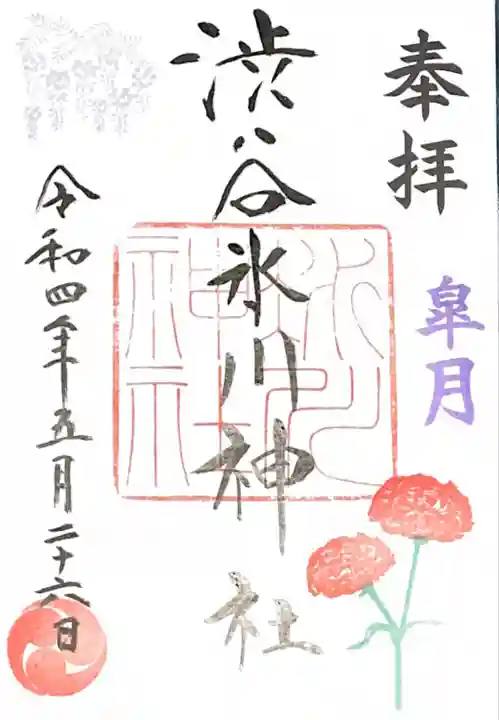 奉拝
皐月
渋谷氷川神社
氷川
神社
令和四年五月二十六日